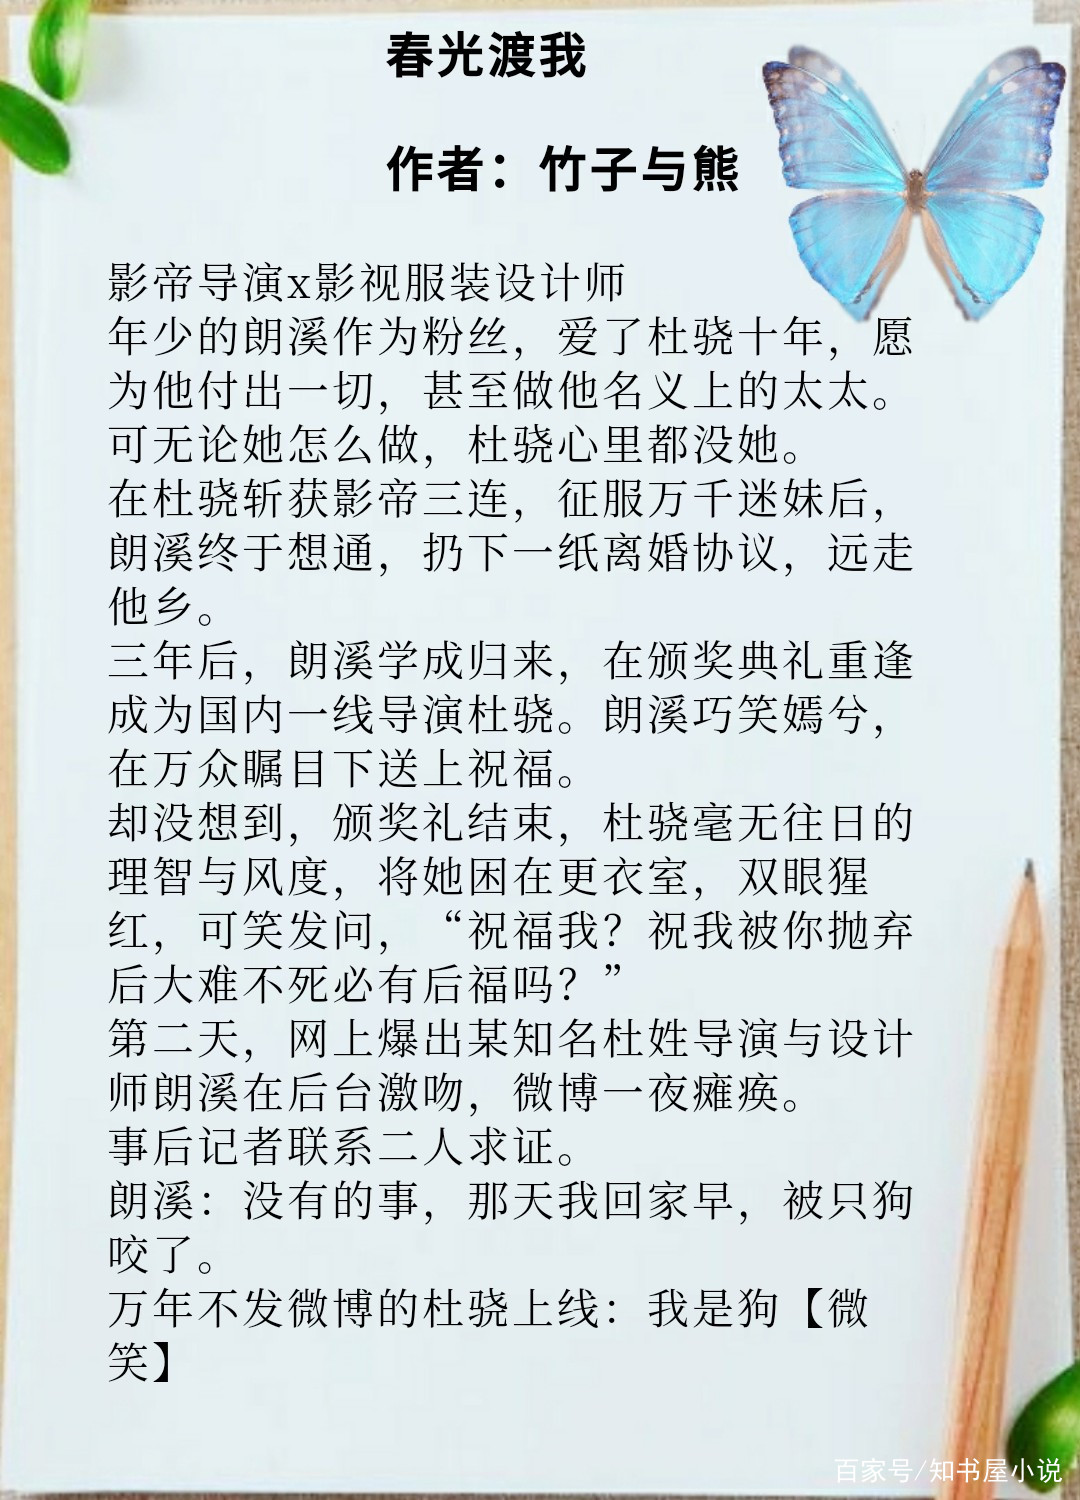 春光渡我
作者：竹子与熊
影帝导演x影视服装设计师
年少的朗溪作为粉丝，爱了杜骁十年，愿
为他付出一切，甚至做他名义上的太太。
可无论她怎么做，杜骁心里都没她。
在杜骁斩获影帝三连，征服万千迷妹后，
朗溪终于想通，扔下一纸离婚协议，远走
他乡。
三年后，朗溪学成归来，在颁奖典礼重逢
成为国内一线导演杜骁。朗溪巧笑嫣兮，
在万众瞩目下送上祝福。
却没想到，颁奖礼结束，杜骁毫无往日的
理智与风度，将她困在更衣室，双眼猩
红，可笑发问，“祝福我？祝我被你抛弃
后大难不死必有后福吗？”
第二天，网上爆出某知名杜姓导演与设计
师朗溪在后台激吻，微博一夜瘫痪。
事后记者联系二人求证。
朗溪：没有的事，那天我回家早，被只狗
咬了。
万年不发微博的杜骁上线：我是狗【微
笑】
百家号/知书屋小说